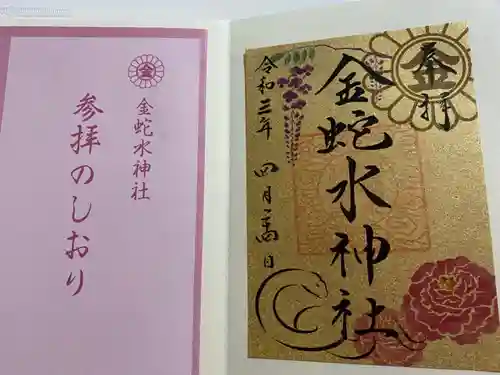 金
金蛇水神社
参拝のしおり
奉拝
金
金蛇水神社
令和三年 四月二四日